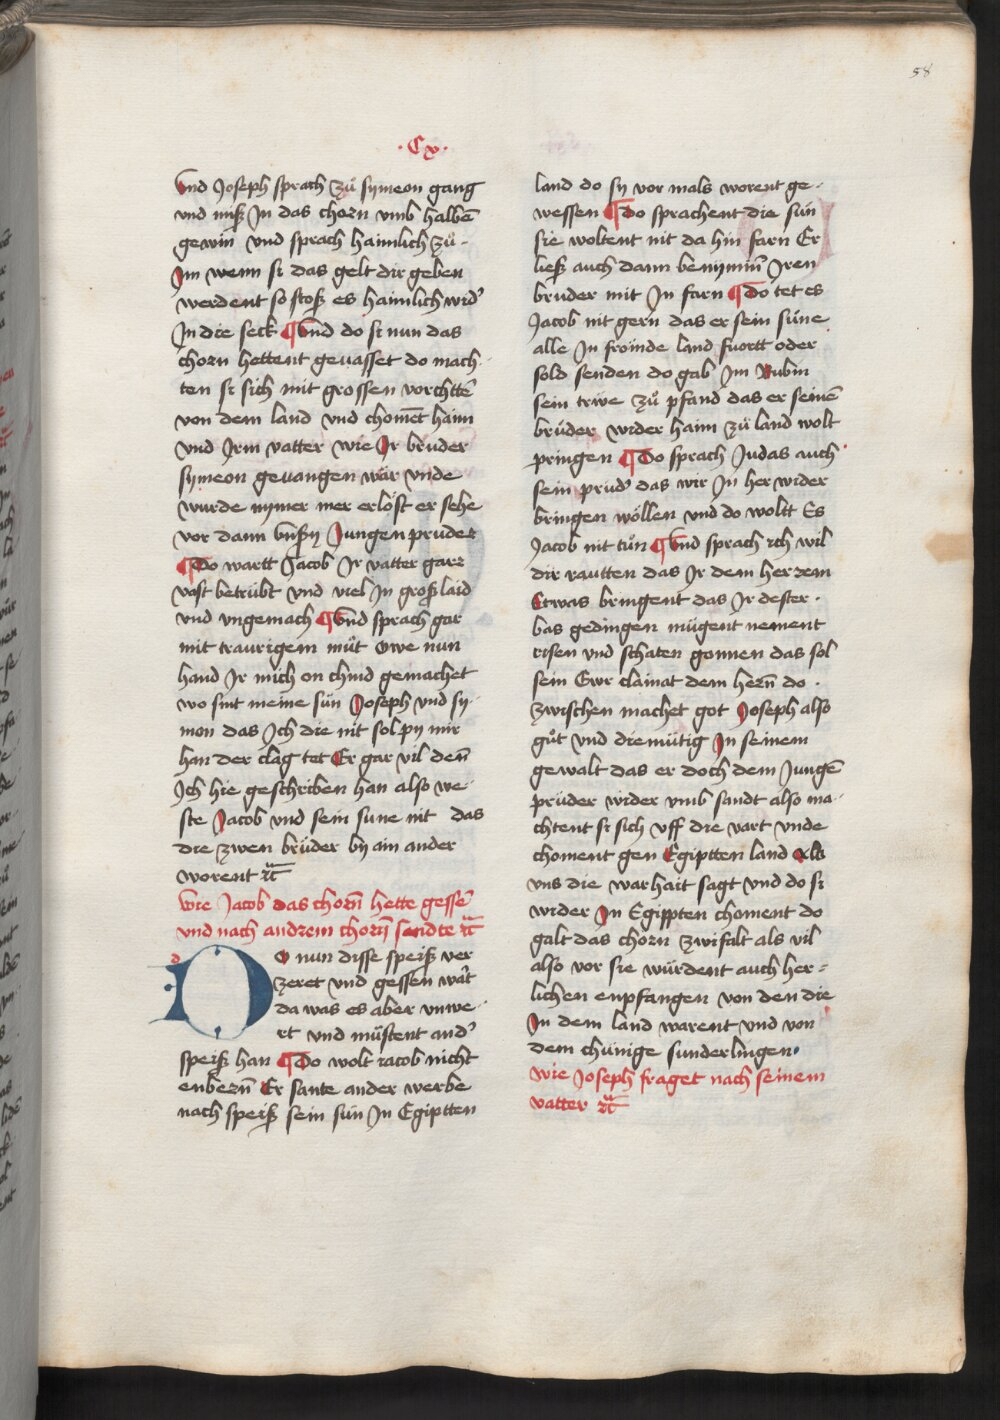 58
·Cv·
Vnd Joseph sprach zů symeon gang
vnd miß In das chorn vmb halbē
gewin vnd sprach haimlich zů-
Im wenn si das gelt dir geben
werdent so stoß es haimlich widˀ
In die seck ¶ Vnd do si nun das
chorn hettent geuasset do mach-
ten si sich mit grossen vorchttē
von dem land vnd chomēt haim
vnd Irm vatter wie Ir bruder
symeon geuangen wär vnde
wurde nymer mer erlöst er sehe
vor dann bēsy Jungen pruder
¶ Do wartt Jacob Ir vatter garr
vast betrübt vnd viel In groß laid
vnd vngemach ¶ Vnd sprach gar
mit traurigem můt owe nun
hand Ir mich on chind gemachet
wo sint meine sün Joseph vnd sy-
mon das Ich die nit sol py mir
han der clag tet Er gar vil denn
Ich hie geschriben han also we-
ste Jacob vnd sein sune nit das
die zwen brüder by ain ander
worent ⁊c̃
Wie Jacob das chorn̄ hette gessē
vnd nach andrem chorn̄ sandte ⁊c̃
DO nun disse speiß ver
zeret vnd gessen wart
da was es aber vnwe-
rt vnd müstent andˀ
speiß han ¶ Do wolt iacob nicht
enbern̄ Er sante ander werbe
nach speiß sein sün In Egiptten
land do sy vor mals worent ge-
wessen ¶ do sprachent die sün
sie woltent nit da hin farn Er
ließ auch dann benymin̄ Iren
bruder mit In farn ¶ Do tet es
Jacob nit gern das er sein süne
alle In froinde land fuortt oder
sold senden do gab Im Rubin
sein trwe zů pfand das er seinē
brüder wider haim zů land wolt
pringen ¶ Do sprach Judas auch
sein prudˀ das wir In her wider
bringen wöllen vnd do woltt Es
Jacob nit tün ¶ Vnd sprach ich wil
dir rautten das Ir dem herrem
Etwas bringent das Ir dester
bas gedingen mügent nement
risen vnd schaten gonnen das sol
sein Ewr clainat dem hern̄ do
zwischen machet got Joseph also
gůt vnd diemütig In seinem
gewalt das er doch dem Jungē
prüder wider vmb sandt also ma-
chtent si sich vff die vart vnde
choment gen Egiptten land Als
vns die warhait sagt vnd do si
wider In Egippten choment do
galt das chorn zwifalt als vil
also vor sie würdent auch her-
lichen enpfangen von den die
In dem land warent vnd von
dem chünige sunderlingen
wie Joseph fraget nach seinem
vatter ⁊c̃